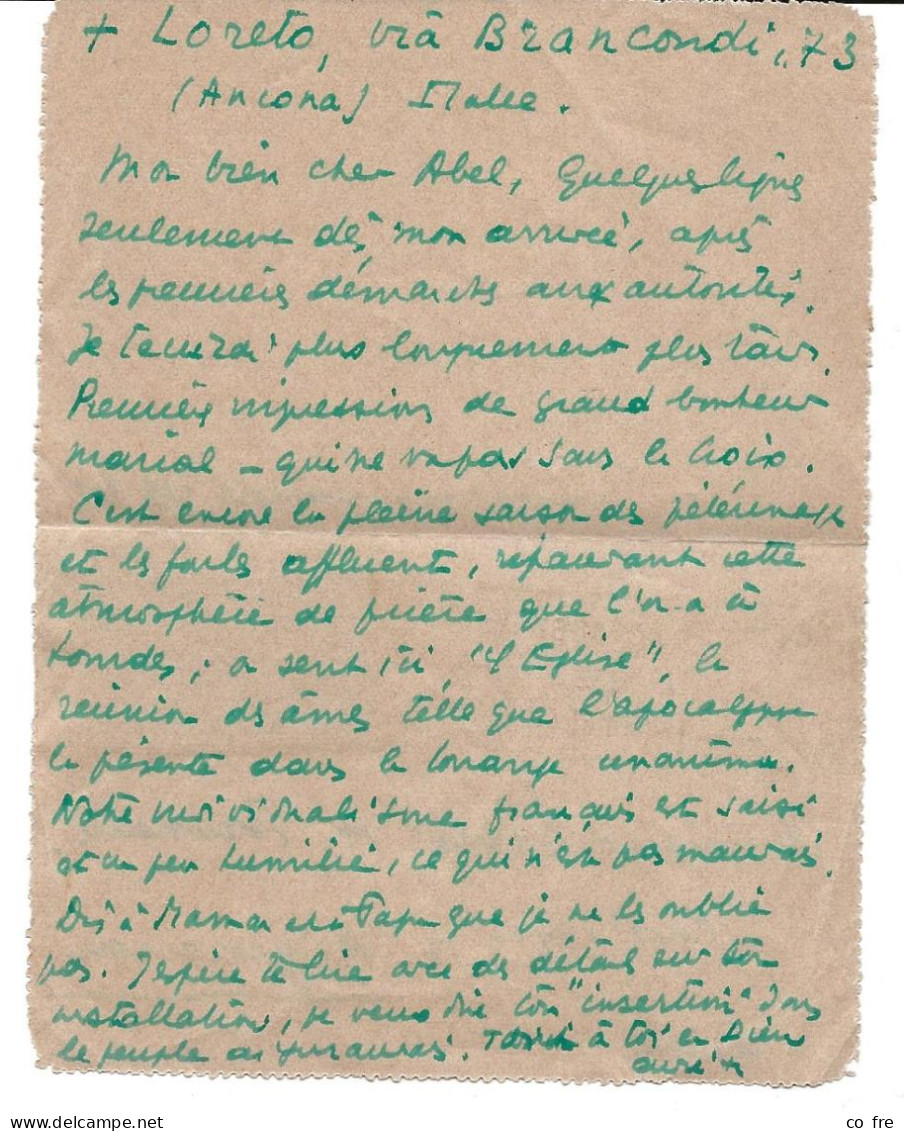 + Loreto, via Brancondi, 73
(Ancona) Italie.
Mon bien cher Abel, Quelques lignes
seulement dès mon arrivée, après
les premières démarches aux autorités.
Je t'écrirai plus longuement plus tard.
Premières impressions de grand bonheur
marial - qui ne va pas sans la Croix.
C'est encore la pleine saison des pèlerinages
et les foules affluent, répandant cette
atmosphère de prière que l'on a à
Lourdes; on sent ici "l'Eglise", la
réunion des âmes telle que l'apocalypse
la présente dans la louange unanime.
Notre individualisme français est saisi
et un peu humilié, ce qui n'est pas mauvais.
Dis à Maman et à Papa que je ne les oublie
pas. J'espère te lire avec des détails sur ton
installation, je veux dire ton "insertion" dans
le peuple de. Tout à toi en Dieu